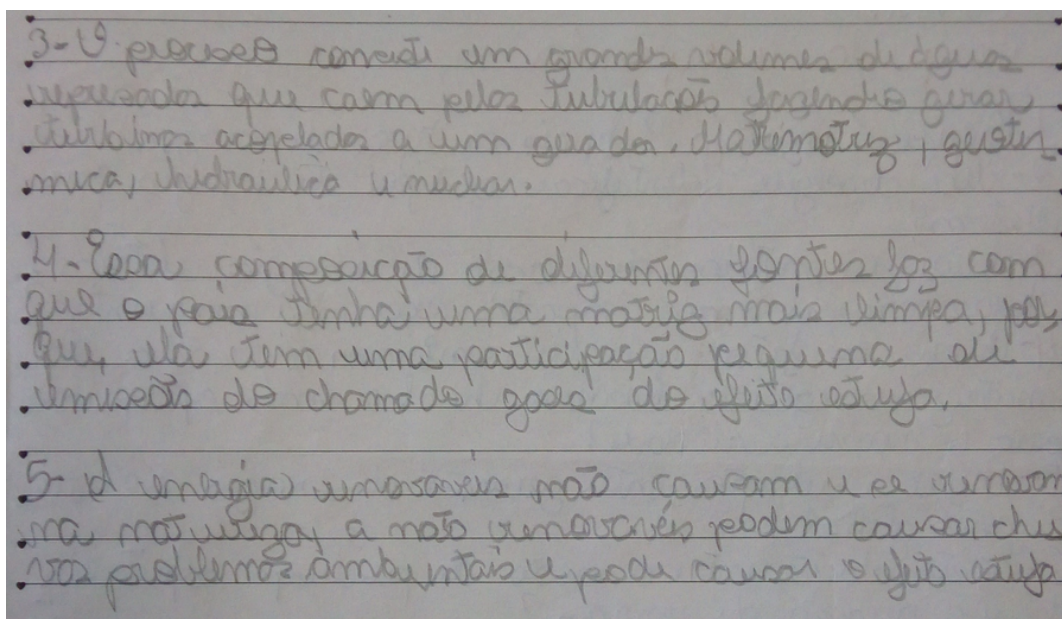 3- O processo consiste um grande volumes de água
represada que caem pelas tubulação fazendo gerar
turbinas acopelados a um gerador. Matemotriz, geotér
mica, hidraulica e nuclear.
4- Essa composição de diferentes fontes faz com
que o país tenha uma matriz mais limpa, por
que, ela tem uma participação pequena de
emissão do chamado gases do efeito estufa.
5- A energia renovaveis não causam e se renovam
na natureza, a não renovaveis podem causar chu
vas problemas ambientais e pode causar o efeito estufa